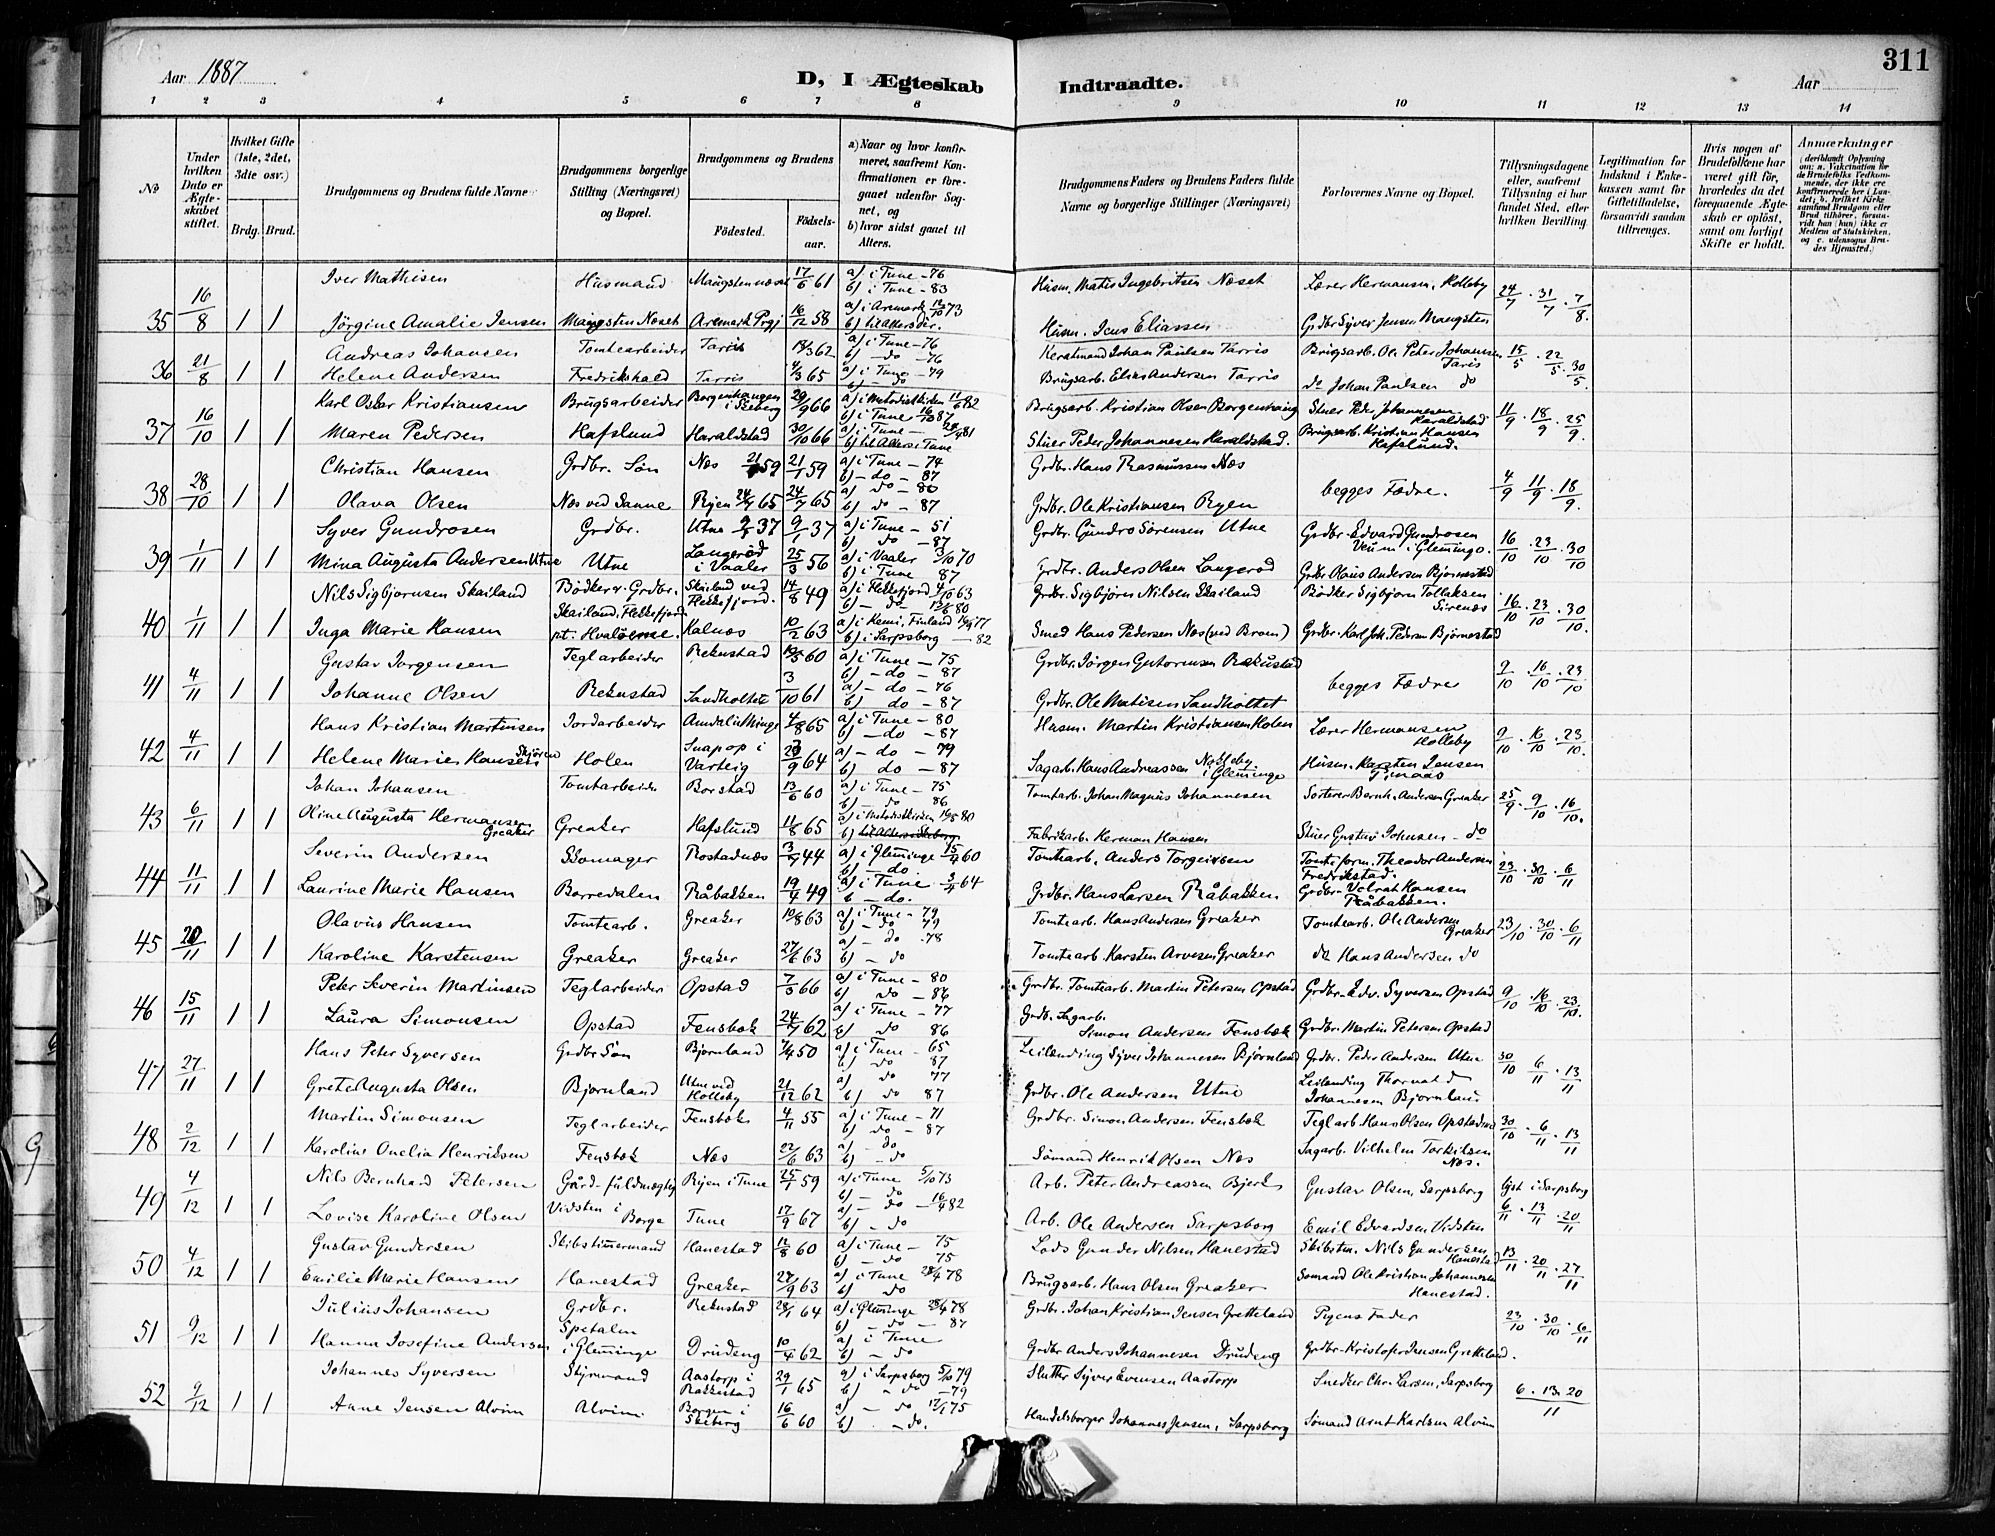 Aar 1887
D, I Ægteskab Indtraadte.
Aar
311
1 2 3 4 5 6 7 8 9 10 11 12 13 14
No
Under hvilken Dato er Ægteskabet stiftet.
Hvilket Gifte (1ste, 2det, 3die osv.)
Brdg. Brud.
Brudgommens og Brudens fulde Navne
Brudgommens borgerlige Stilling (Næringsvei) og Bopæl.
Brudgommens og Brudens
Fødested.
Fødselsaar.
a) Naar og hvor konfirmeret, saafremt Konfirmationen er foregaaet udenfor Sognet, og
b) hvor sidst gaaet til Alters.
Brudgommens Faders og Brudens Faders fulde Navne og borgerlige Stillinger (Næringsvei)
Forlovernes Navne og Bopæl.
Tillysningsdagene eller, saafremt Tillysning ei har fundet Sted, efter hvilken Bevilling.
Legitimation for Indskud i Enkekassen samt for Giftetilladelse, forsaavidt saadan tiltrænges.
Hvis nogen af Brudefolkene har været gift før, hvorledes da det foregaaende Ægteskab er opløst, samt om lovligt Skifte er holdt.
Anmærkninger
35 16/8 1 1
Iver Mathisen Husmand 17/6 61 a) i Tune - 76 b) i Tune - 83 Husm. Matis Ingebritsen Næset Lærer Hermansen, Holleby 24/7 . 31/7 . 7/8.
Jörgine Amalie Jensen Mangsten Næset Aremark Prgj 16/12 58 a) i Aremark 73 Husm. Jens Eliassen Grdbr Syver Jensen Mangsten
36 21/8 1 1
Andreas Johansen Tomtearbeider Tarris 62 a) i Tune - 76 b) - do - 76 Johan Paulsen Tarris Brugsarb. Ole Peter Johansen Taris 15/5 . 22/5 . 30/5.
Helene Andersen Fredrikshald Tarris 65 a) i Tune - 79 b) - do Brugsarb. Elias Andersen Tarris do Johan Paulsen do
37 16/10 1 1
Karl Oskar Kristiansen Brugsarbeider Borgenhaugen i Skeberg 29/9 66 a) i Metodistkirken 82 b) i Tune 87 Brugsarb. Kristian Olsen Borgenhaug Stuer Peder Johannesen Haraldstad 11/9 . 18/9 . 25/9.
Maren Pedersen Hafslund Haraldstad 30/10 66 a) i Tune - 81 b) til Alters i Tune Stuer Peder Johannesen Haraldstad. Brugsarb. Kristian Hansen Hafslund.
38 28/10 1 1
Christian Hansen Grdbr. Søn Næs 21/1 59 21/1 59 a) i Tune - 74 b) - do - 87 Grdbr. Hans Rasmussen Næs begges Fædre. 4/9 11/9 . 18/9.
Olava Olsen Næs ved Sanne Ryen 24/7 65 24/7 65 a) do - 80 b) do - 87 Grdbr. Ole Kristiansen Ryen
39 1/11 1 1
Syver Gundrosen Grdbr. Utne 9/1 37 9/1 37 a) i Tune - 51 b) do - 87 Grdbr. Gundro Sørensen Utne Grdbr. Edvard Gundrosen Veum i Gleminge. 16/10 . 23/10 . 30/10
Mina Augusta Andersen Utne Utne Langerød i Vaaler 25/3 56 a) i Vaaler 3/10 70 b) i Tune 87 Grdbr. Anders Olsen Langerød Grdbr Olaus Andersen Bjørnestad
40 1/11 1 1
Nils Sigbjørnsen Skailand Bødker & Grdbr. Skailand ved Flekkefjord. 14/8 49 a) i Flekkefjord 63 b) - do 80 Grdbr. Sigbjørn Nilsen Skailand Bødker Sigbjørn Tollaksen Sirenæs 16/10 . 23/10 . 30/10.
Inga Marie Hansen Skailand, Flekkefjord pt. Hvaløerne. Kalnæs 10/2 63 a) i Kemi, Finland 77 b) i Sarpsborg - 82 Smed Hans Pedersen Næs Grdbr. Karl Joh. Pedersen Bjørnestad
41 4/11 1 1
Gustav Jørgensen Teglarbeider Rekustad 60 a) i Tune - 75 b) - do - 87 Grdbr. Jörgen Gutormsen Rakustad begges Fædre 9/10 . 16/10 . 23/10.
Johanne Olsen Rekustad Sandholtet 3/10 61 a) - do - 76 b) do - 87 Grdbr. Ole Matisen Sandholtet
42 4/11 1 1
Hans Kristian Martinsen Jordarbeider 4/8 65 a) i Tune - 80 b) - do - 87 Husm. Martin Kristiansen Holen Lærer Hermansen Holleby 9/10 . 16/10 . 23/10.
Helene Marie Hansen Holen Snapop i Varteig 64 a) - do - 79 b) do - 87 Sagarb. Hans Andreassen i Gleminge Husm. Karsten Jensen
43 6/11 1 1
Johan Johansen Tomtarbeider Borstad 13/6 60 a) i Tune - 75 b) - do 86 Tomtarb. Johan Magnus Johannesen Sorterer Bernh. Andersen Greaker 25/9 . 9/10 . 16/10.
Oline Augusta Hermansen Greaker Greaker Hafslund 11/8 65 a) i Metodistkirken 80 Fabrikarb. Herman Hansen Stuer Gustav Johnsen - do
44 11/11 1 1
Severin Andersen Skomager Rostadnæs 44 a) i Gleminge 60 b) - do Tomtearb. Anders Torgersen Tomteform. Theodor Andersen Fredrikstad. 23/10 . 30/10 . 6/11
Laurine Marie Hansen Borredalen Råbakken 19/4 49 a) i Tune 64 b - do. Grdbr. Hans Larsen Råbakken Grdbr. Velrat Hansen Råbakken.
45 20/11 1 1
Olavus Hansen Tomtearb. Greaker 63 a) i Tune - 79 b) - do 79 Tomtearb. Hans Andersen Greaker Tomtearb. Ole Andersen Greaker 23/10 . 30/10 . 6/11
Karoline Karstensen Greaker Greaker 27/6 63 a) - do - 78 b) - do Tomtearb Karsten Arvesen Greaker do Hans Andersen do
46 15/11 1 1
Peter Severin Martinsen Teglarbeider Opstad 66 a) i Tune - 80 b) do - 86 Grdbr. Tomtearb. Martin Petersen Opstad Grdbr. Edv. Syversen Opstad 9/10 . 16/10 . 23/10.
Laura Simonsen Opstad Fensbæk 24/7 62 a) i Tune - 77 b) do 86 Grdb. Sagarb. Simon Andersen Fensbæk Grdbr. Martin Petersen Opstad
47 27/11 1 1
Hans Peter Syversen Grdbr Søn Bjørnland 50 a) i Tune - 65 b) do 87 Leilending Syver Johannesen Bjørnland Grdbr. Peder Andersen Utne 30/10 6/11 . 13/11
Grete Augusta Olsen Bjørnland Utne ved Holleby 21/12 62 a) do 77 b) do 87 Grdbr. Ole Andersen Utne Leilending Thorvald Johannesen Bjørnland
48 2/12 1 1
Martin Simonsen Teglarbeider Fensbæk 4/11 55 a) i Tune - 71 b) do - 87 Grdbr. Simon Andersen Fensbæk Teglarb Hans Olsen 30/10 . 6/11 . 13/11
Karoline Onelia Henriksen Fensbæk Næs 22/6 63 a) - do b) - do Sømand Henrik Olsen Næs Sagarb. Vilhelm Torkilsen Næs.
49 4/12 1 1
Nils Bernhard Petersen Gårdfuldmægtig Ryen i Tune 59 a) i Tune 5/10 73 b) - do Arb. Peter Andreassen Bjerk Gustav Olsen, Sarpsborg lyst i Sarpsborg
Lovise Karoline Olsen Vidsten i Borge Tune 17/9 67 a) - do - 82 b) - do Arb. Ole Andersen Sarpsborg Emil Edvardsen Vidsten 6/11 . 13/11 . 20/11
50 4/12 1 1
Gustav Gundersen Skibstimmermand Hanestad 12/8 60 a) i Tune - 75 b) - do 75 Lods Gunder Nilsen Hanestad Skibstm. Nils Gundersen Hanestad 13/11 . 20/11 . 27/11
Emilie Marie Hansen Hanestad Greaker 63 a) i Tune 78 b) do Brugsarb. Hans Olsen Greaker Sømand Ole Kristian Johannesen Hanestad.
51 9/12 1 1
Julius Johansen Grdbr. Rekustad 64 a) i Gleminge 78 b) - do - 87 Grdbr. Johan Kristian Jensen Gretteland Pigens Fader 23/10 . 30/10 . 6/11
Hanna Josefine Andersen Spetalen i Gleminge Drudeng 10/4 62 a) i Tune b) - do Grdbr Anders Johannesen Drudeng Grdbr. Kristofer Jensen Gretteland.
52 9/12 1 1
Johannes Syversen Styrmand Aastorp i Rakkestad 29/1 65 a) i Sarpsborg 5/10 79 b) " do - 79 Slutter Syver Evensen Aastorp Snedker Chr. Larsen, Sarpsborg 6 . 13 . 20/11
Anne Jensen Alvim Alvim Borgen i Skeberg 16/6 60 a) - do 75 b) - do. Handelsborger Johannes Jensen, Sarpsborg Sømand Arnt Karlsen Alvim